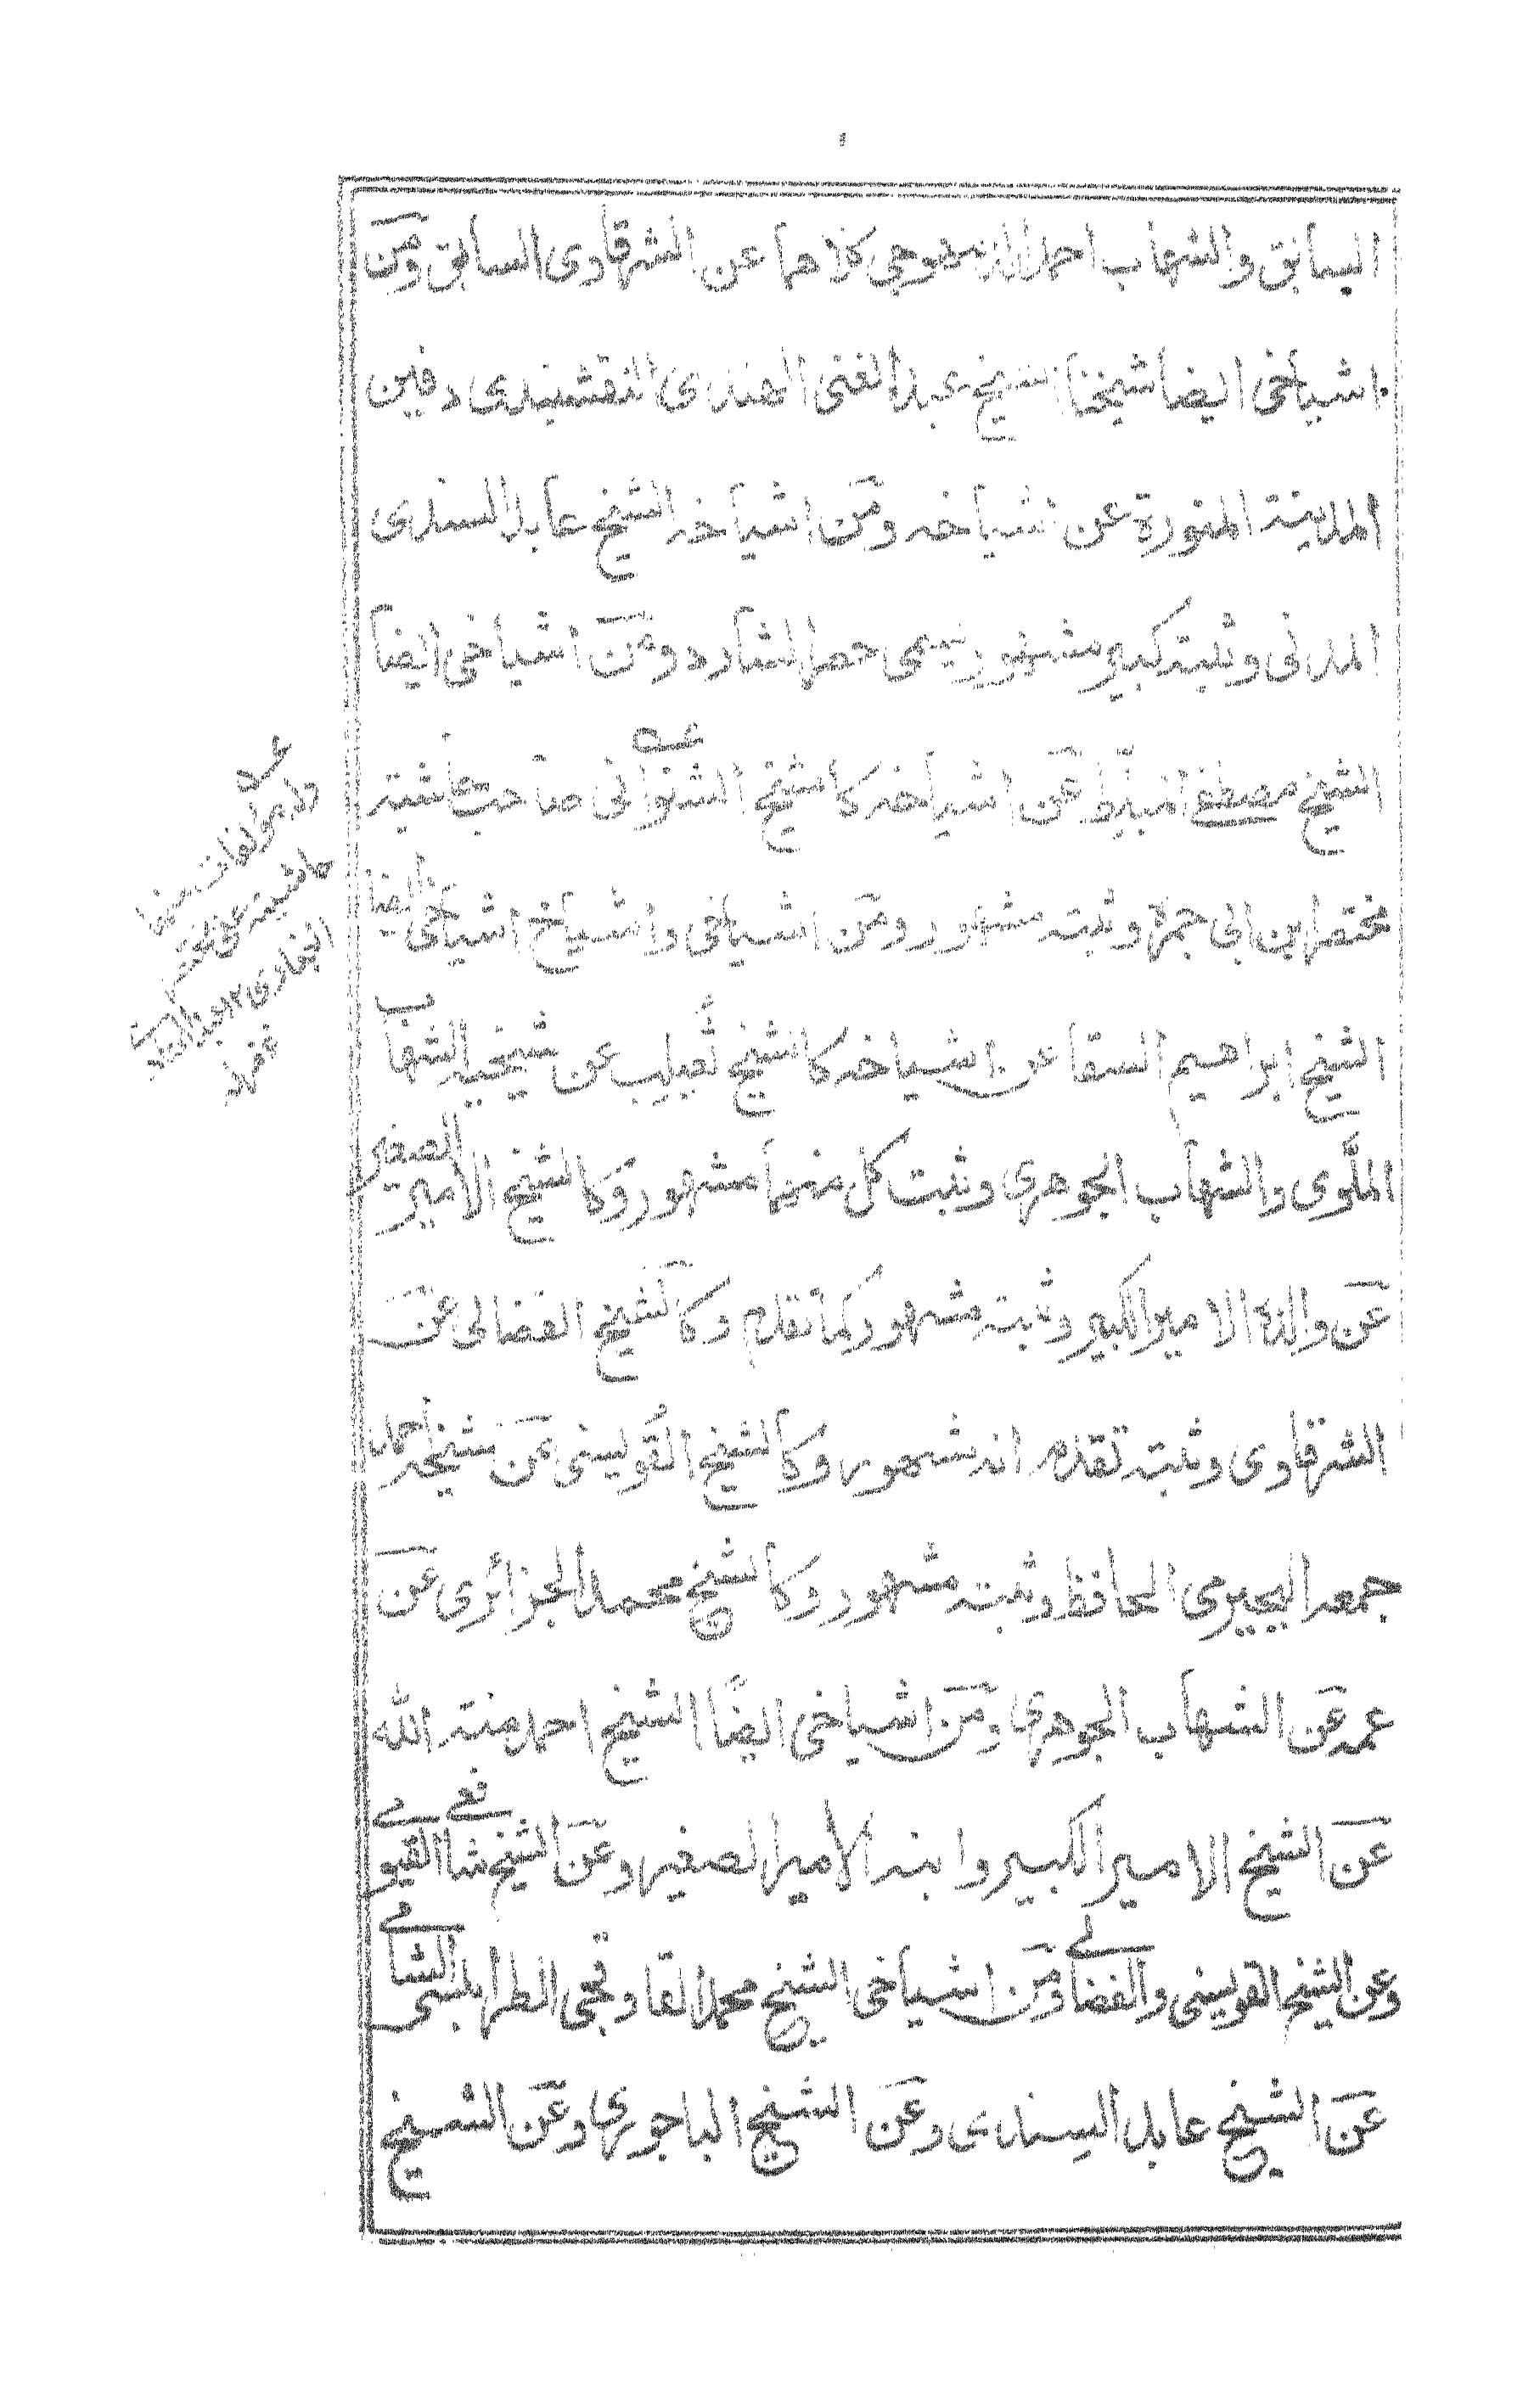 السابق والشهاب احمد الدمهوجي كلاهما عن الشرقاوى السابق ومن
اشياخى ايضا شيخنا الشيخ عبد الغنى الهندى النقشبندى دفين
المدينة المنورة عن اشياخه ومن اشياخه الشيخ عابد السندى
المدنى وثبته كبير مشهور يسمى حصر الشارد ومن اشياخى ايضا
الشيخ مصطفى المبلط عن اشياخه كالشيخ الشنوانى صاحب حاشية
مختصر ابن ابى جمرة وثبته مشهور ومن اشياخى واشياخ اشياخى ايضا
الشيخ ابراهيم السقا عن اشياخه كالشيخ ثعيلب عن شيخيه الشهاب
الملَّوى والشهاب الجوهرى وثبت كل منهما مشهور وكالشيخ الامير الصغير
عن والده الامير الكبير وثبته مشهور كما تقدم وكالشيخ الفضالى عن
الشرقاوى وثبته تقدم انه مشهور وكالشيخ القويسنى عن شيخه احمد
جمعه البجيرمى الحافظ وثبته مشهور وكالشيخ محمد الجزائرى عن
عمه عن الشهاب الجوهرى ومن اشياخى ايضًا الشيخ احمد منة الله
عن الشيخ الامير الكبير وابنه الامير الصغير وعن الشيخ شافعى القيومى
وعن الشيخ القويسنى والفضالى ومن اشياخى الشيخ محمد القاوقجى الطرابلسى الشامى
عن الشيخ عابد السندى وعن الشيخ الباجورى وعن الشيخ
عـــه
وله مؤلفات منها
حاشيته على مختصر
البخارى ١٢